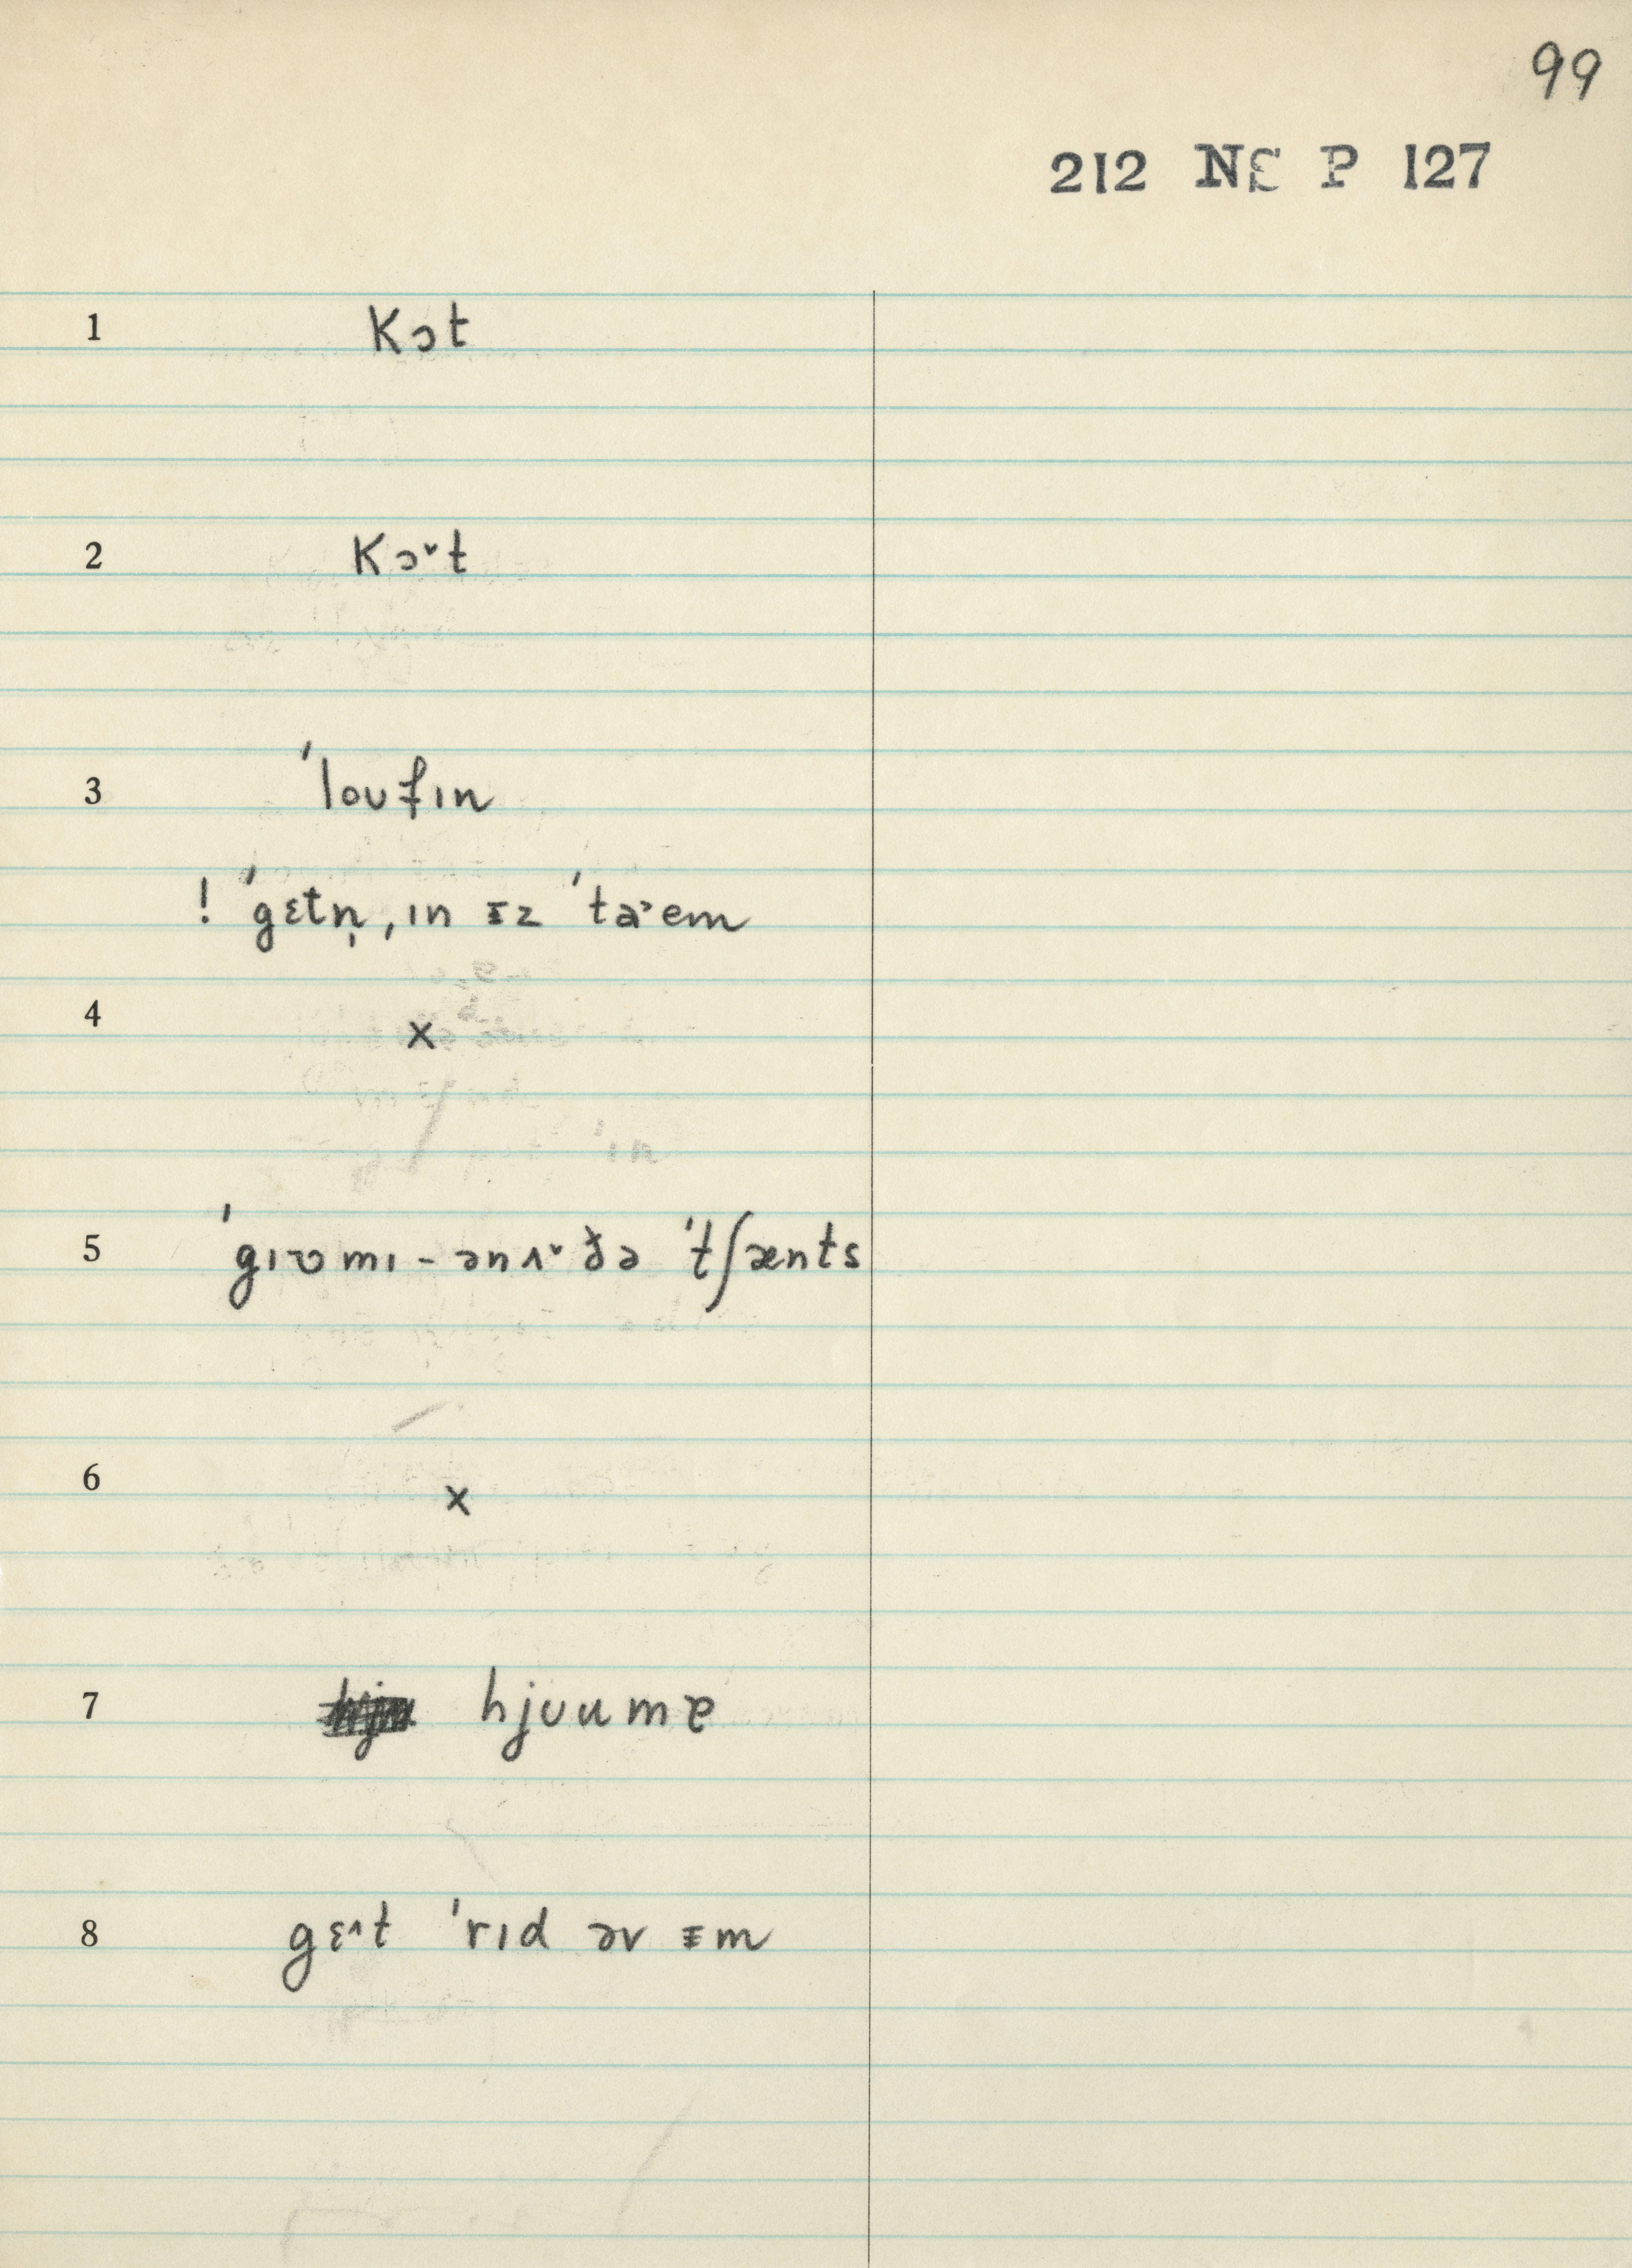 99
212 NE P 127
1 kɔt
2 kɔ˅t
3 ˈloʊfɪn
! ˈgɛtn̩ ˌɪn ᵻz ˈta˃ɛm
4 x
5 ˈgɪʊmɪ - ənʌ˅ðə ˈtʃænts
6 x
7 hjʊumɐ
8 gɛ˄t ˈrɪd əv ᵻm